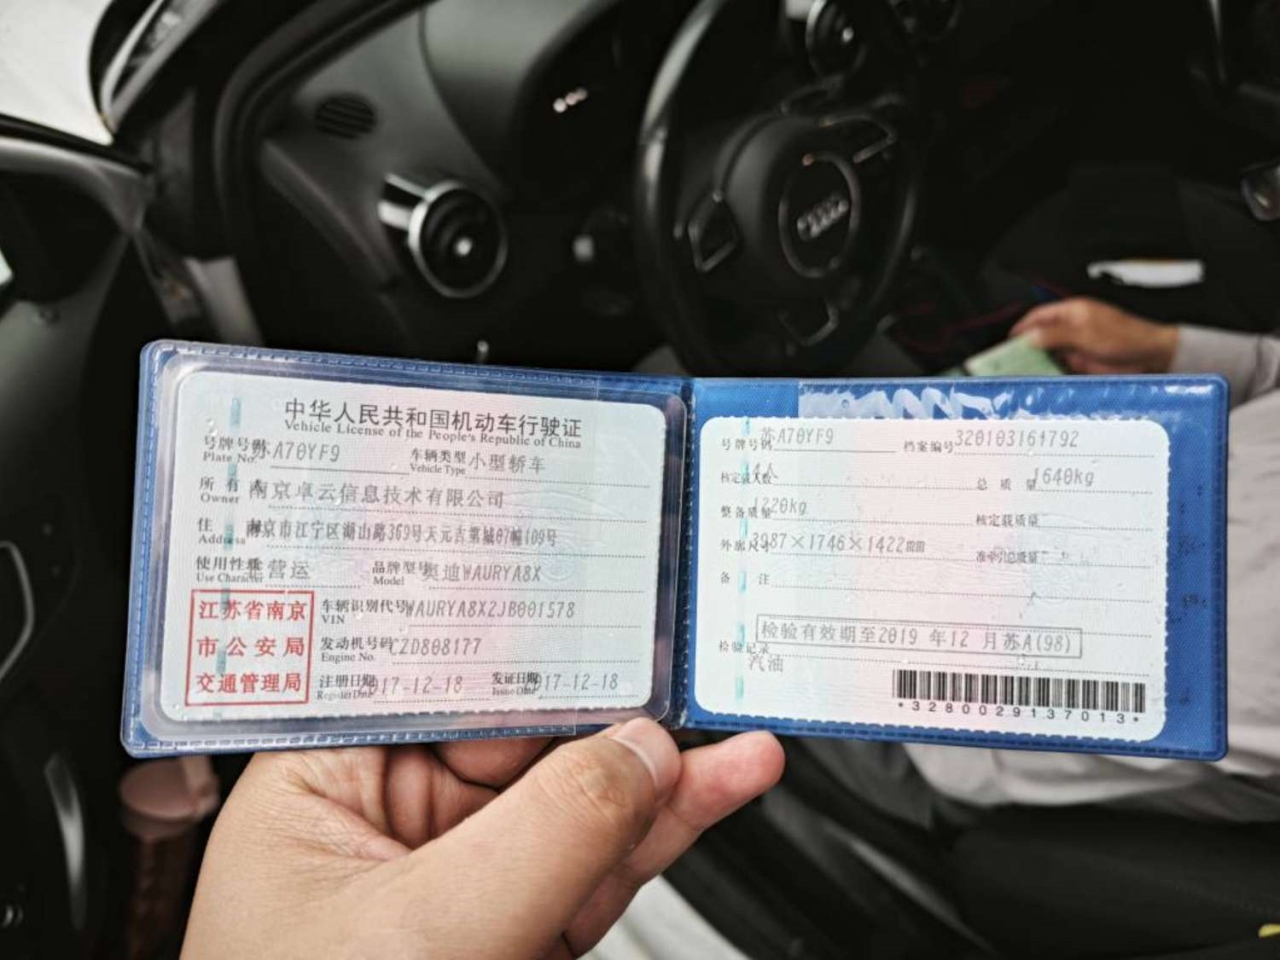 中华人民共和国机动车行驶证
Vehicle License of the People's Republic of China
号牌号码 苏A70YF9 车辆类型 小型轿车
Plate No. Vehicle Type
所有人 南京卓云信息技术有限公司
Owner
住址 南京市江宁区湖山路369号天元吉第城07幢109号
Address
使用性质 营运 品牌型号 奥迪WAURYA8X
Use Character Model
江苏省南京
市公安局
交通管理局
车辆识别代号 WAURYA8X2JB001578
VIN
发动机号码 CZD808177
Engine No.
注册日期 017-12-18 发证日期 017-12-18
Register Date Issue Date
号牌号码 苏A70YF9 档案编号 320103161792
核定载人数 4人 总质量 1640kg
整备质量 1220kg 核定载质量
外廓尺寸 3987×1746×1422mm 准牵引总质量
备注
检验有效期至2019 年12 月苏A(98)
检验记录
汽油
*3280029137013*